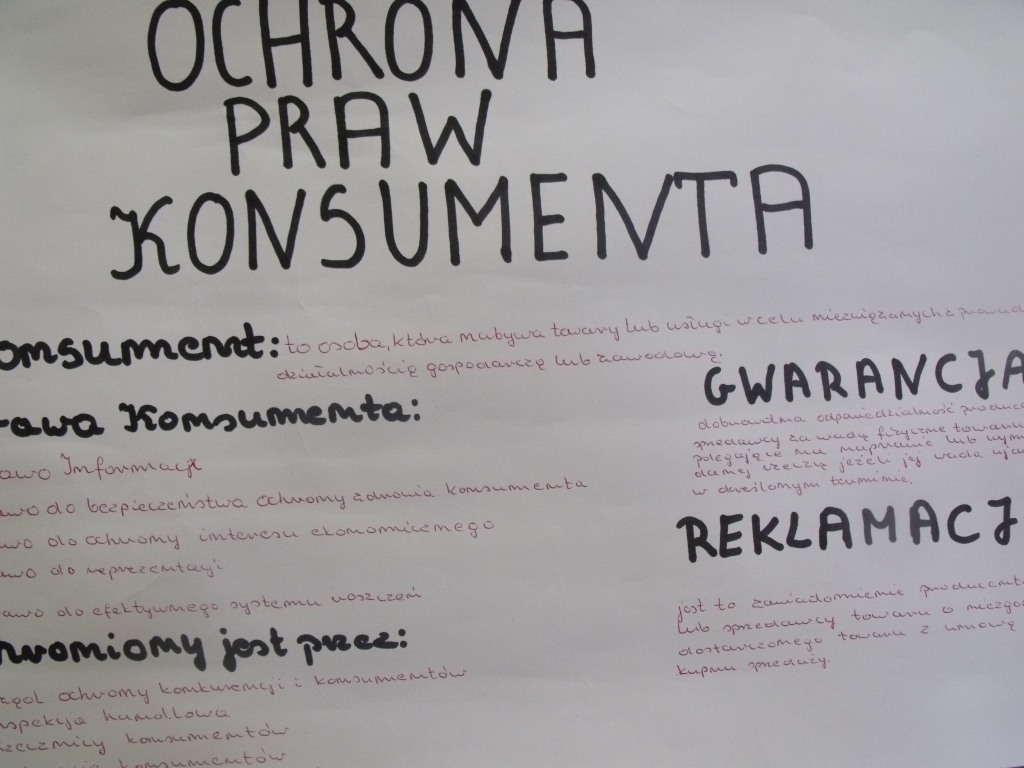 OCHRONA
PRAW
KONSUMENTA
onsument: to osoba, która nabywa towary lub usługi w celu niezwiązanych z prowad
działalnością gospodarczą lub zawodową.
rawa Konsumenta:
awo Informacji
awo do bezpieczeństwa ochrony zdrowia konsumenta
awo do ochrony interesu ekonomicznego
awo do reprezentacji
awo do efektywnego systemu roszczeń
hroniony jest przez:
rząd ochrony konkurencji i konsumentów
nspekcja handlowa
zecznicy konsumentów
konsumentów
GWARANCJA
dobrowolna odpowiedzialność produce
sprzedawcy za wady fizyczne towaru
polegające na naprawie lub wym
danej rzeczy jeżeli jej wada uja
w określonym terminie.
REKLAMACJ
jest to zawiadomienie producenta
lub sprzedawcy towaru o niezgo
dostarczonego towaru z umową
kupna sprzedaży.